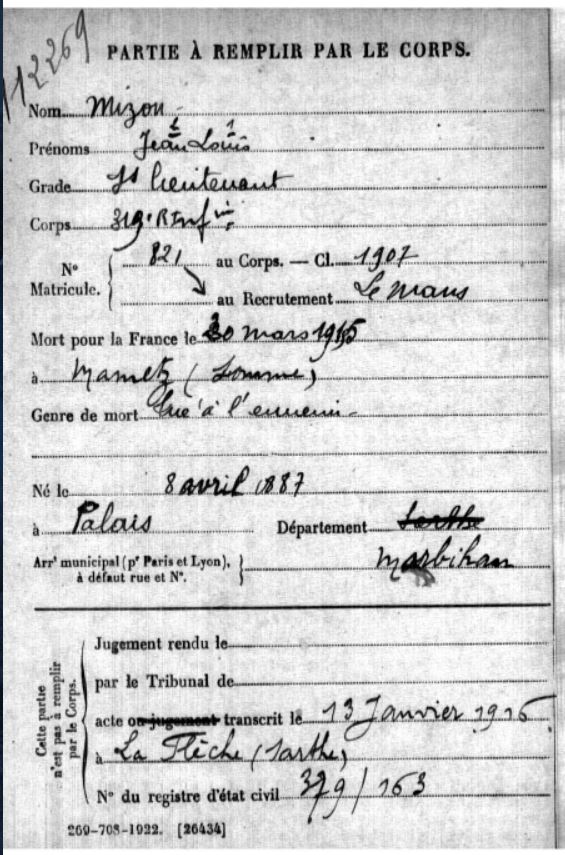 112269
PARTIE À REMPLIR PAR LE CORPS.
Nom Mizon
Prénoms Jean Louis
2 1
Grade St lieutenant
Corps 319e R Infie
N° Matricule. { 821 au Corps. — Cl. 1907
au Recrutement Le Mans
Mort pour la France le 30 mars 1915
à Mametz (Somme)
Genre de mort tué à l'ennemi
Né le 8 avril 1887
à Palais Département Sarthe
Arrt municipal (pr Paris et Lyon), à défaut rue et N°. } Morbihan
Cette partie n'est pas à remplir par le Corps.
Jugement rendu le
par le Tribunal de
acte ou jugement transcrit le 13 Janvier 1916
à La Flèche (Sarthe)
N° du registre d'état civil 379/163
269-708-1922. [26434]